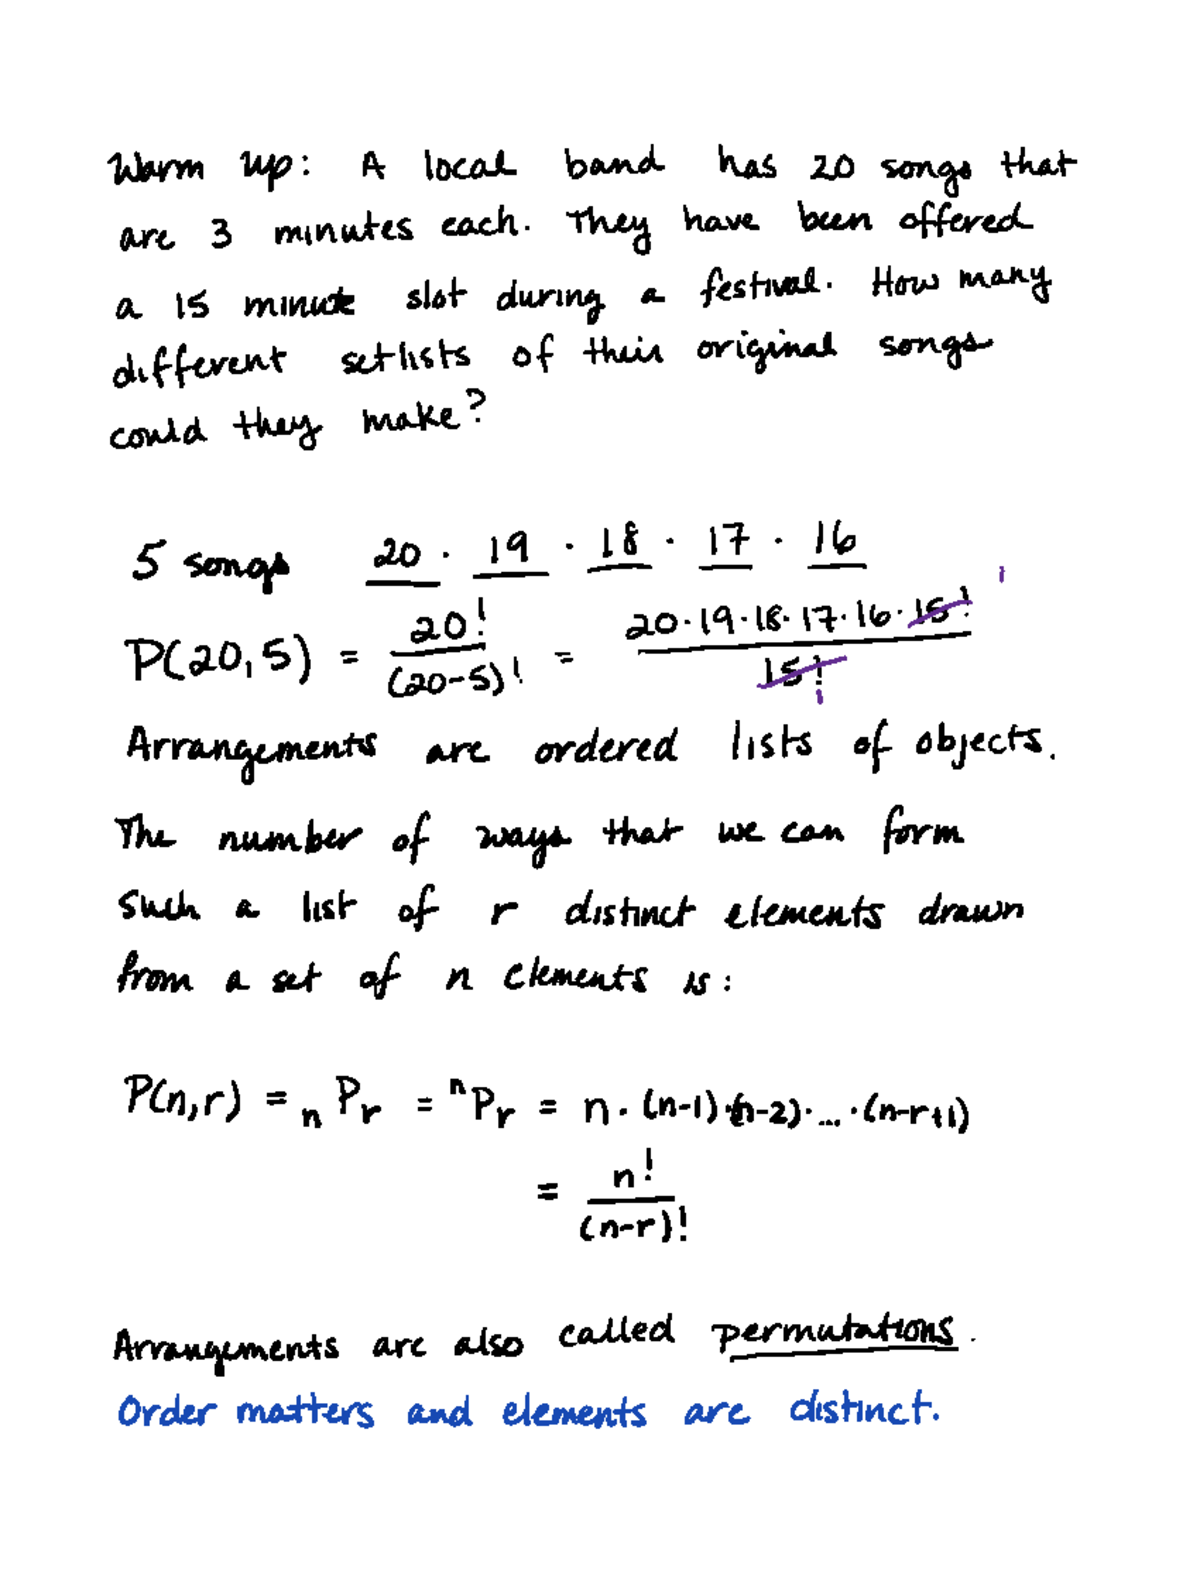 Warm up: A local band has 20 songs that
are 3 minutes each. They have been offered
a 15 minute slot during a festival. How many
different setlists of their original songs
could they make?
5 songs 20 · 19 · 18 · 17 · 16
P(20,5) = 20! / (20-5)! = 20·19·18·17·16·15! / 15!
1
1
Arrangements are ordered lists of objects.
The number of ways that we can form
such a list of r distinct elements drawn
from a set of n elements is:
P(n,r) = nPr = ⁿPr = n · (n-1)·(n-2)· ... ·(n-r+1)
= n! / (n-r)!
Arrangements are also called permutations.
Order matters and elements are distinct.